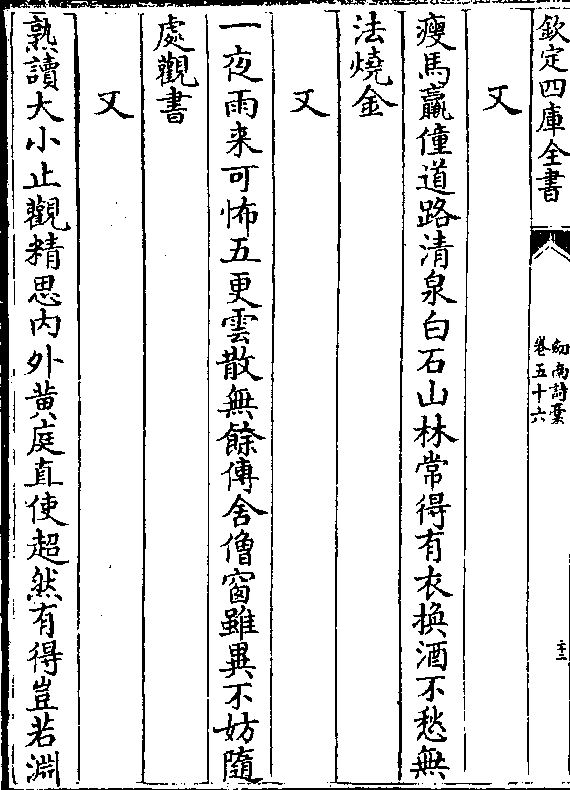 欽定四庫全書
劍南詩稾
卷五十六
二十二
又
瘦馬羸僮道路清泉白石山林常得有衣換酒不愁無
法燒金
又
一夜雨来可怖五更雲散無餘傳舍僧窗雖異不妨隨
處觀書
又
熟讀大小止觀精思内外黄庭直使超然有得豈若淵